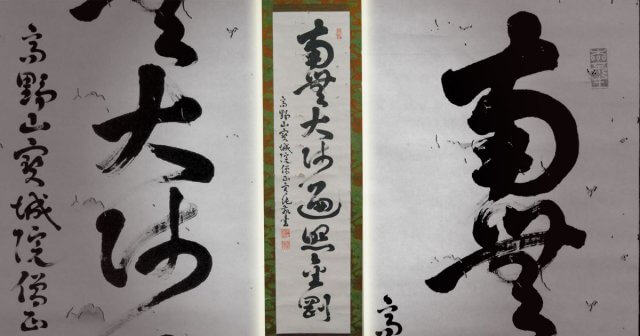 大師
高野山寳城院僧正
南無大師遍照金剛
高野山寳城院僧正
南無
高